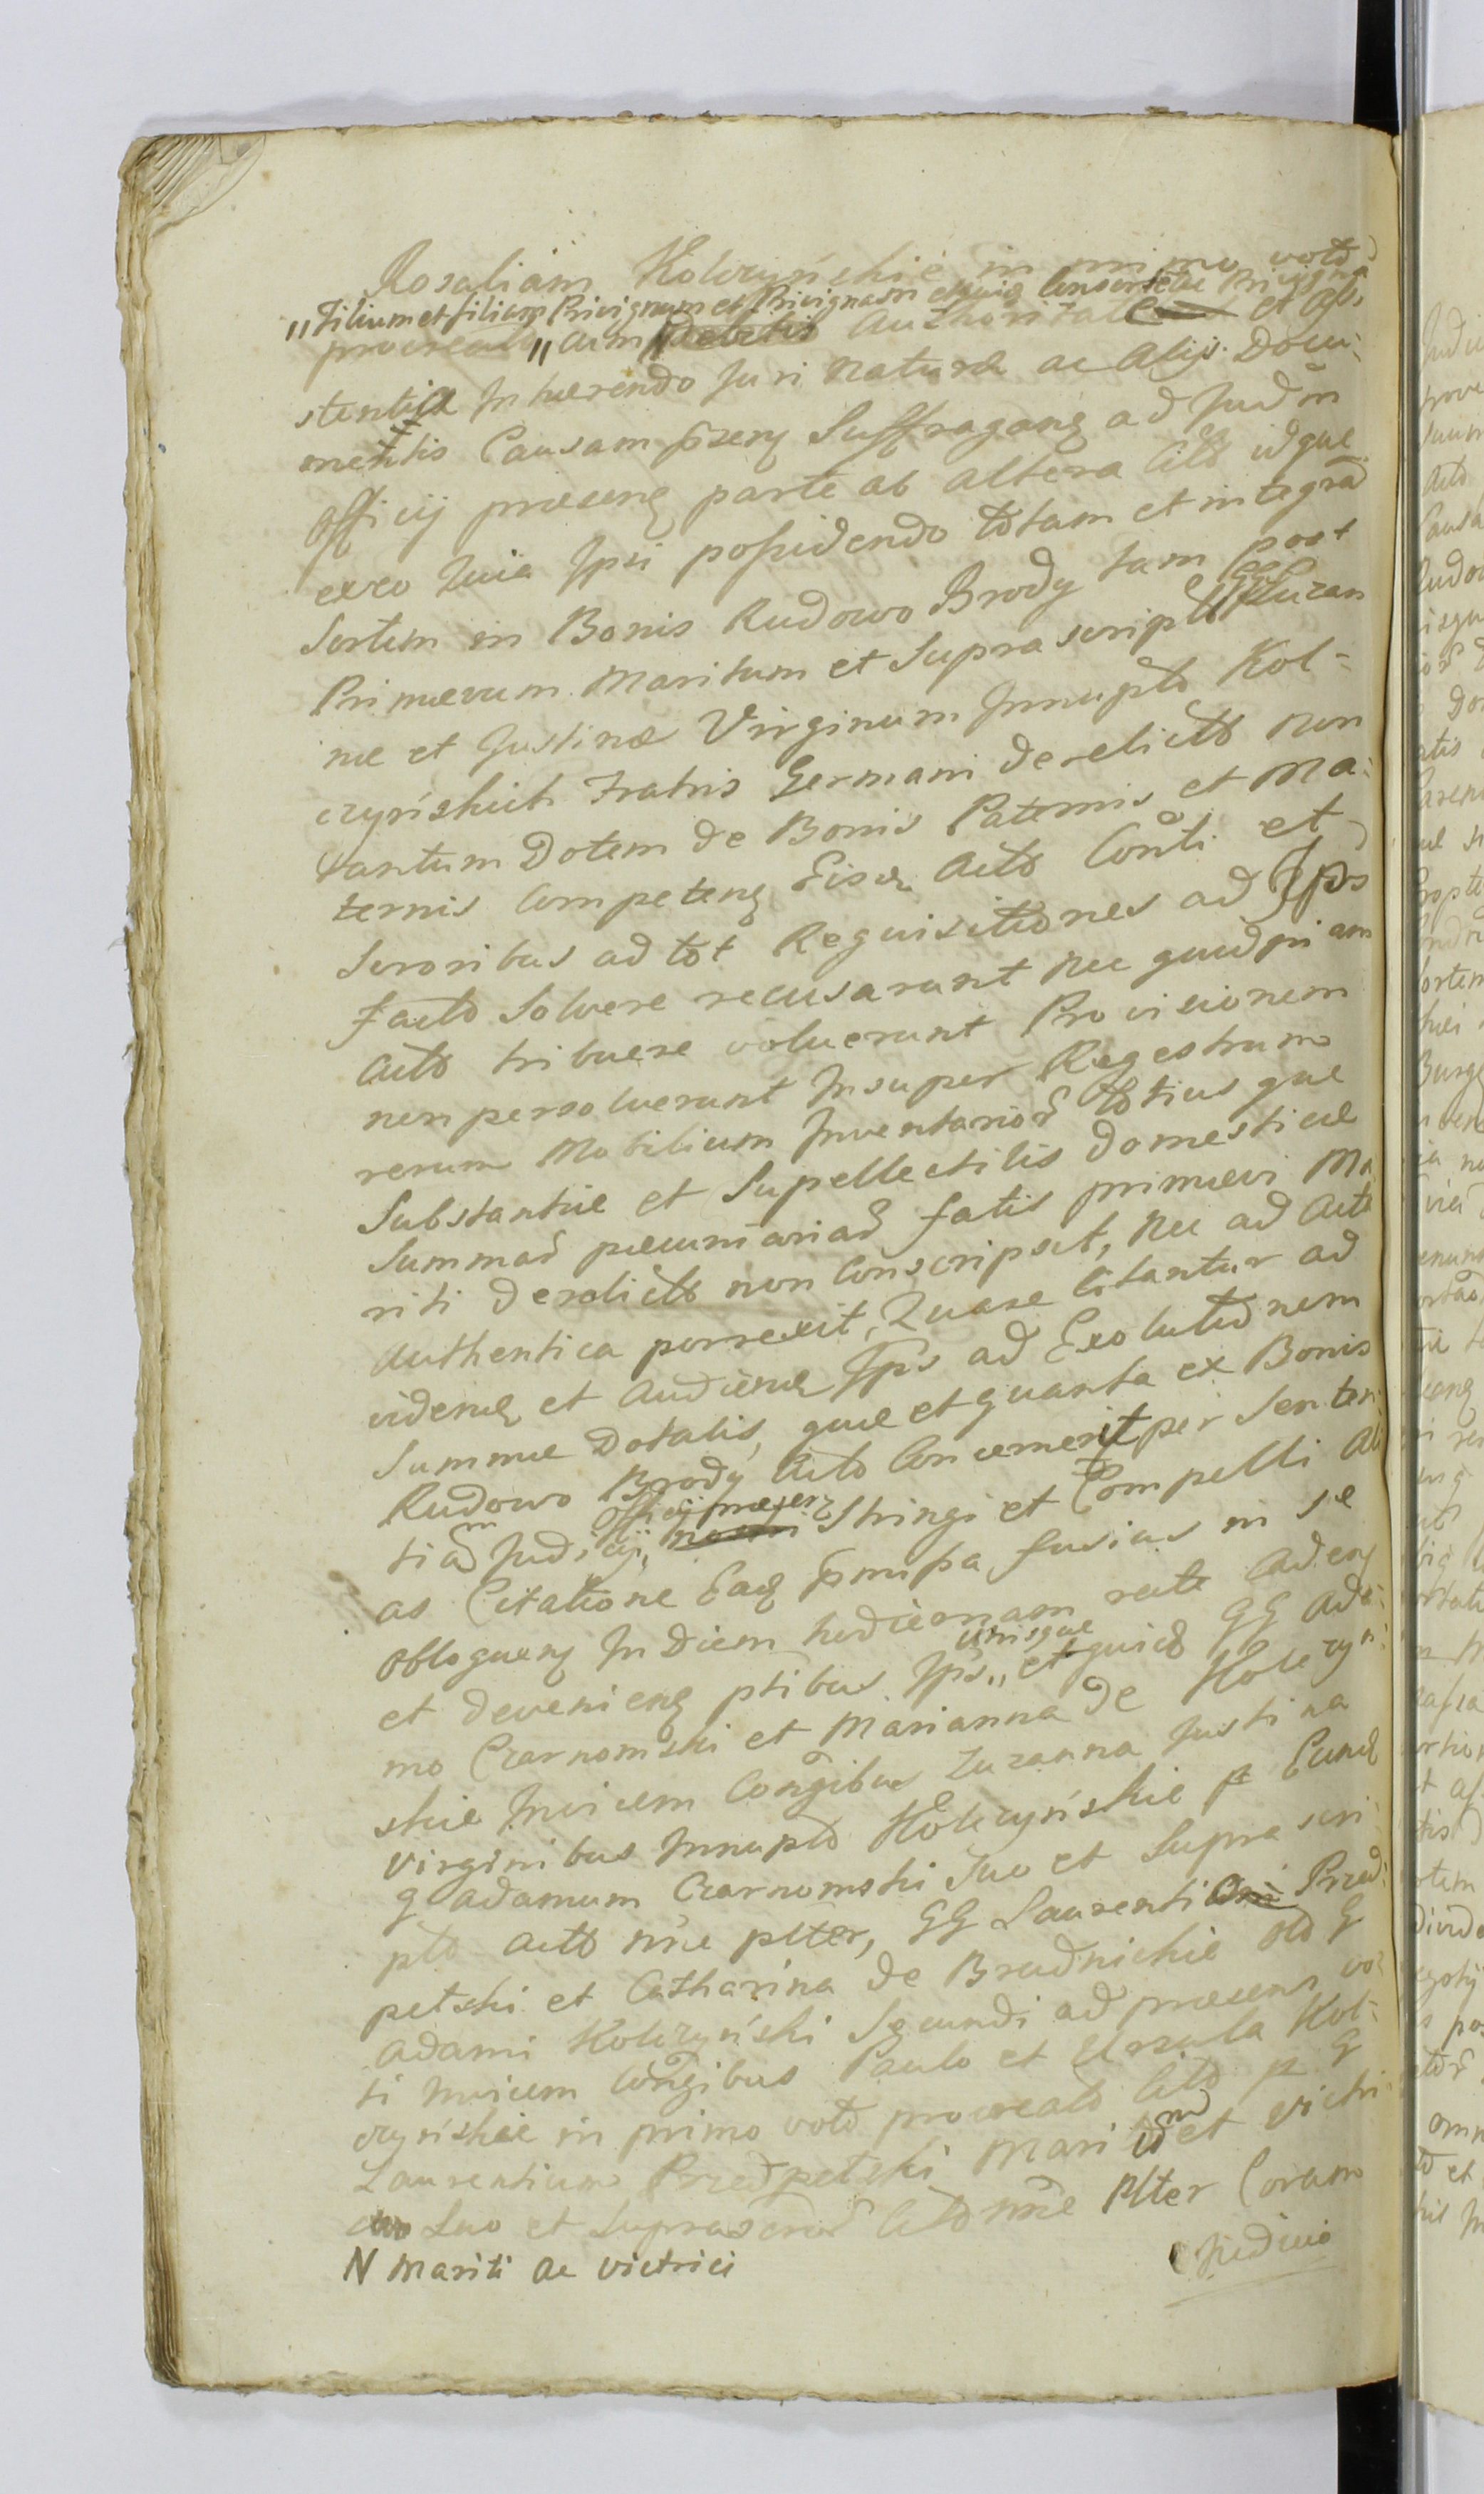 Rosaliam Kolczyńskie in primo voto
"Filium et filiam Privignum et Privignam
procreato " cum Authoritate et Assi,
stentia Inhaerendo Juri Naturae ac Alijs Docu:
mentis Causam Suffragang ad Jud
Officij praeseng parte ab altera Citto idque
exeo quia Ipsi possidendo totam et integra
Sortem in Bonis Rudowo Brody tam post
Primaevum Maritum et Suprascripto Zuzan
nae et Justinae Virginum Innupto Kol=
czyńskich Fratris Germani derelicto non
tantum Dotem de Bonis Paternis et Ma:
ternis Competeng Eisd Acto et
Sororibus ad tot Requisitiones ad Ips
facto Solvere recusarunt nec quidpiam
Acto tribuere voluerunt Provisionem
non persolverunt Insuper Regestrum
rerum Mobilium Inventarior totius que
Substantiae et Supellectilis domesticae
Summar pecuniariar fatis primaevi Ma
riti derelicto non Conscripsit, nec ad Acta
Authentica porrexit, Quare Citantur ad
vidend et Audiend Ips ad Exolutionem
Summae Dotalis, quae et quanta ex Bonis
Rudowo Brody Acto Concernerit per Senten
Officij praesen
tiam Judicij, Stringi et Compelli Ali
as Citatione Eaq fusius in se
obloqueng In Diem hodiernam recte Cadeng
utrisque
et devenieng ptibus Ips " et quid GG Ada:
mo Czarnomski et Marianna de Kolczyń:
skie Invicem Congibus Zuzanna Justina
Virginibus Innupto Kolczyńskie p Eund
G Adamum Czarnomski Suo et Suprascri
pto Acto nne plter, GG Laurenti Przed:
petski et Catharina de Brudnickie olo G
Adami Kolczyński Secundi ad praesens vo
ti Invicem Congibus Paulo et Urzula Kol=
czyńskie in primo voto procreato Citto p G
Laurentium Przedpetski Maritum et victri
Suo et Suprascr Citto nne Plter Coram
N Mariti ac victrici
Judicio